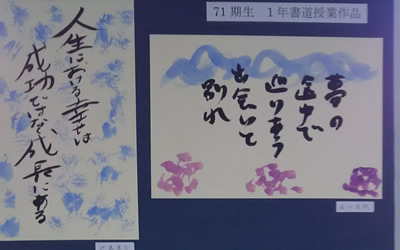 71期生 1年書道授業作品
夢の
途中で
巡りあう
出会いと
別れ
人生における幸せは
成功ではなく成長にある